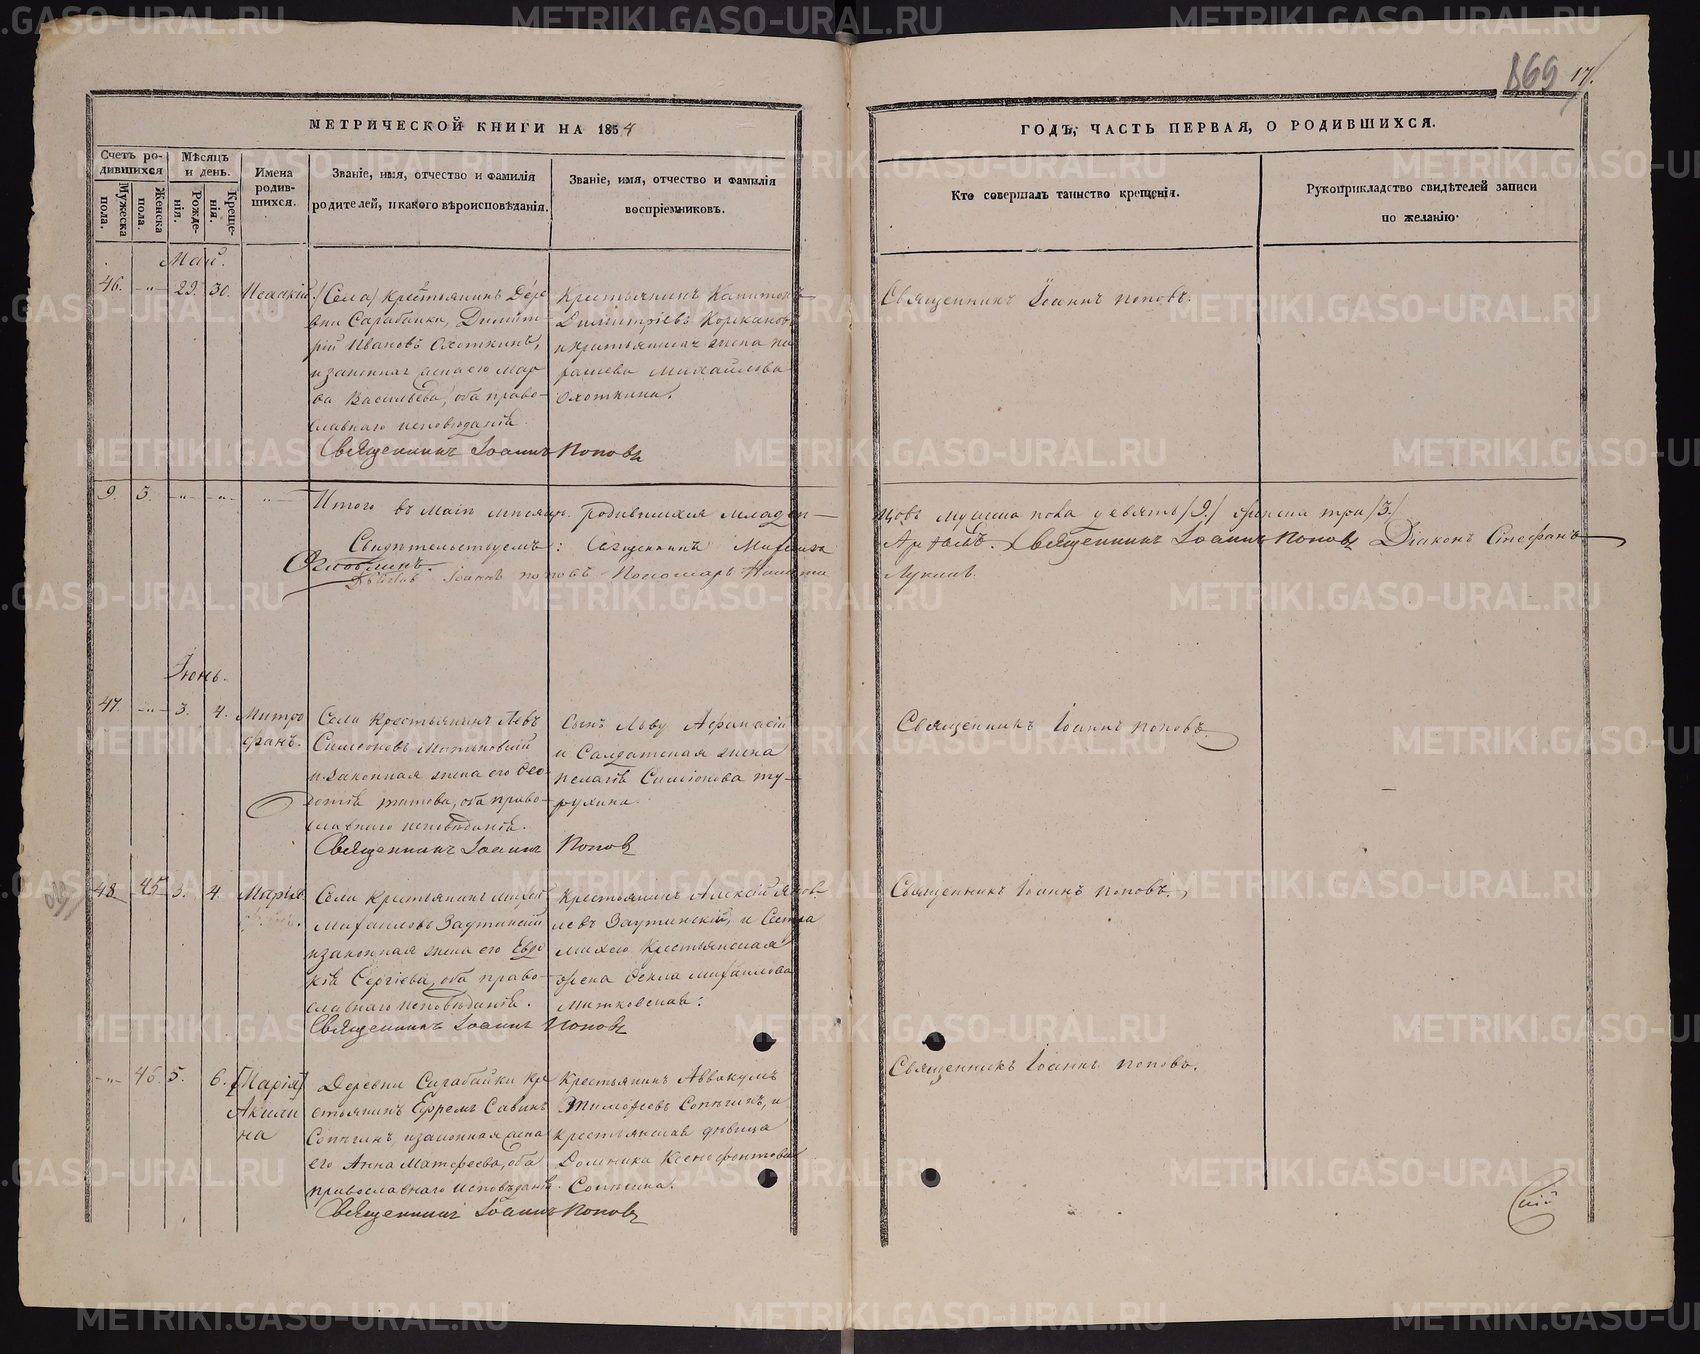 869 17.
МЕТРИЧЕСКОЙ КНИГИ НА 1854
ГОДЪ, ЧАСТЬ ПЕРВАЯ, О РОДИВШИХСЯ.
Счетъ родившихся
Мужеска пола.
Женска пола.
Мѣсяцъ и день.
Рожденія.
Крещенія.
Имена родившихся.
Званіе, имя, отчество и фамилія
родителей, и какого вѣроисповѣданія.
Званіе, имя, отчество и фамилія
воспріемниковъ.
Кто совершалъ таинство крещенія.
Рукоприкладство свидѣтелей записи
по желанію.
Май.
46. -"- 29. 30. Исаакій
(Села) Крестьянинъ Дере
вни Сарабайки, Димит-
рій Ивановъ Охоткинъ,
и законная жена его Мар
Васильева, оба право-
славнаго исповѣданія
Священникъ Іоаннъ Поповъ
Крестьянинъ Капитонъ
Димитріевъ
и крестьянская жена па
Михайлова
Охоткина.
Священникъ Іоаннъ поповъ.
9. 3. -"- -"- -"-
Итого въ маіѣ мѣсяцѣ родившихся младен-
цовъ мужеска пола девять /9/ женска три /3/
Свидѣтельствуемъ: Священникъ
Священникъ Іоаннъ Поповъ Діаконъ Стефанъ
Іоаннъ поповъ Пономарь
Лукинъ.
Іюнь.
47. -"- 3. 4. Митро
фанъ.
Села Крестьянинъ Левъ
Симеоновъ
и законная жена его Ѳео-
Титова, оба право-
славнаго исповѣданія.
Священникъ Іоаннъ Поповъ
Сынъ Льву Афанасій
и Салдатская жена
Пелагія Симіонова ту-
рухина.
Священникъ Іоаннъ поповъ.
48 45 3. 4. Марія
Села Крестьянинъ
Михайловъ Заутинскій
и законная жена его Евдо
кія Сергіева, оба право-
славнаго исповѣданія.
Священникъ Іоаннъ Поповъ
Крестьянинъ Алексій Яков
левъ Заутинскій, и Сестра
Крестьянская
жена Ѳекла Михайлова
Священникъ Іоаннъ поповъ.
-"- 46. 5. 6. [Марія]
Акили
на
Деревни Сарабайки Кре
стьянинъ Ефремъ Савинъ
Сопѣгинъ, и законная жена
его Анна Матфеева, оба
православнаго исповѣданія.
Священникъ Іоаннъ Поповъ
Крестьянинъ Аввакумъ
Тимофеевъ Сопѣгинъ, и
крестьянская дѣвица
Домника Ксенофонтова
Сопѣгина.
Священникъ Іоаннъ поповъ.
METRIKI.GASO-URAL.RU